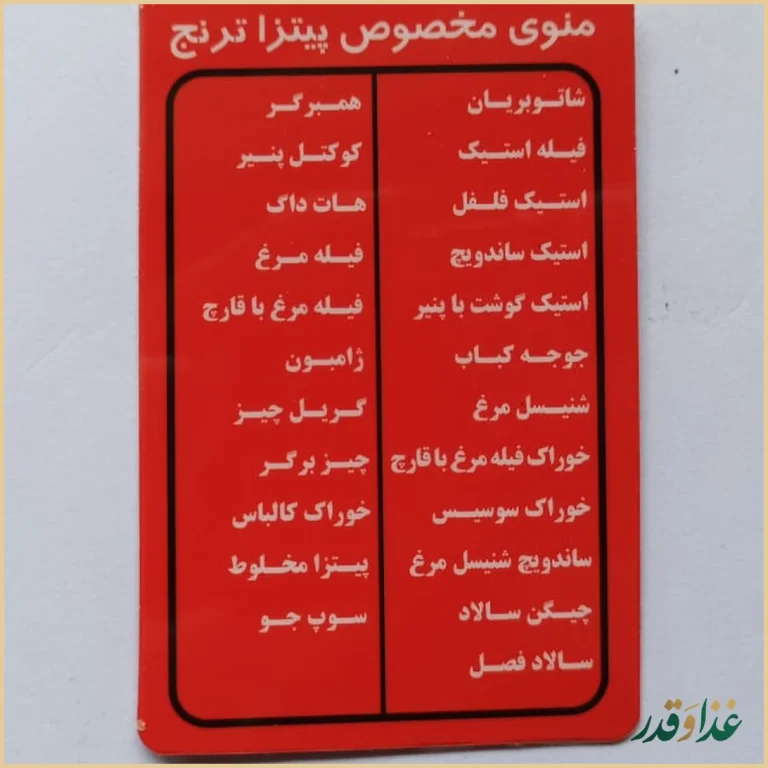 منوی مخصوص پیتزا ترنج
شاتوبریان
فیله استیک
استیک فلفل
استیک ساندویچ
استیک گوشت با پنیر
جوجه کباب
شنیسل مرغ
خوراک فیله مرغ با قارچ
خوراک سوسیس
ساندویچ شنیسل مرغ
چیگن سالاد
سالاد فصل
همبرگر
کوکتل پنیر
هات داگ
فیله مرغ
فیله مرغ با قارچ
ژامبون
گریل چیز
چیز برگر
خوراک کالباس
پیتزا مخلوط
سوپ جو
غذا و قدر